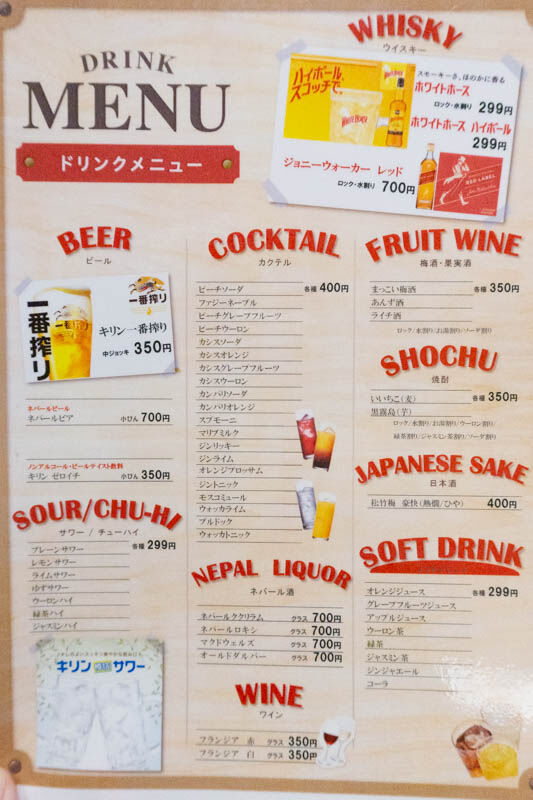 DRINK
MENU
ドリンクメニュー
WHISKY
ウイスキー
ハイボール、
スコッチで。
WHITE HORSE
スモーキーさ、ほのかに香る
ホワイトホース
ロック・水割り 299円
ホワイトホース ハイボール
299円
ジョニーウォーカー レッド
ロック・水割り 700円
RED LABEL
BEER
ビール
一番搾り
一番搾り
一番搾り
キリン一番搾り
中ジョッキ 350円
ネパールビール
ネパールビア 小びん 700円
ノンアルコール・ビールテイスト飲料
キリン ゼロイチ 小びん 350円
SOUR/CHU-HI
サワー / チューハイ
プレーンサワー 各種 299円
レモンサワー
ライムサワー
ゆずサワー
ウーロンハイ
緑茶ハイ
ジャスミンハイ
キリン サワー
COCKTAIL
カクテル
ピーチソーダ 各種 400円
ファジーネーブル
ピーチグレープフルーツ
ピーチウーロン
カシスソーダ
カシスオレンジ
カシスグレープフルーツ
カシスウーロン
カンパリソーダ
カンパリオレンジ
スプモーニ
マリブミルク
ジンリッキー
ジンライム
オレンジブロッサム
ジントニック
モスコミュール
ウォッカライム
ブルドック
ウォッカトニック
NEPAL LIQUOR
ネパール酒
ネパールククリラム グラス 700円
ネパールロキシ グラス 700円
マクドウェルズ グラス 700円
オールドダルバー グラス 700円
WINE
ワイン
フランジア 赤 グラス 350円
フランジア 白 グラス 350円
FRUIT WINE
梅酒・果実酒
まっこい梅酒 各種 350円
あんず酒
ライチ酒
ロック/水割り/お湯割り/ソーダ割り
SHOCHU
焼酎
いいちこ(麦) 各種 350円
黒霧島(芋)
ロック/水割り/お湯割り/ウーロン割り
緑茶割り/ジャスミン茶割り/ソーダ割り
JAPANESE SAKE
日本酒
松竹梅 豪快(熱燗/ひや) 400円
SOFT DRINK
オレンジジュース 各種 299円
グレープフルーツジュース
アップルジュース
ウーロン茶
緑茶
ジャスミン茶
ジンジャエール
コーラ